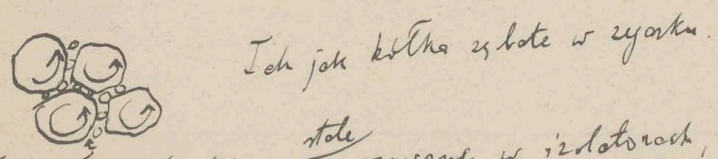 Ich jak kółka zębate w zegarku.
stale
w izolatorach,